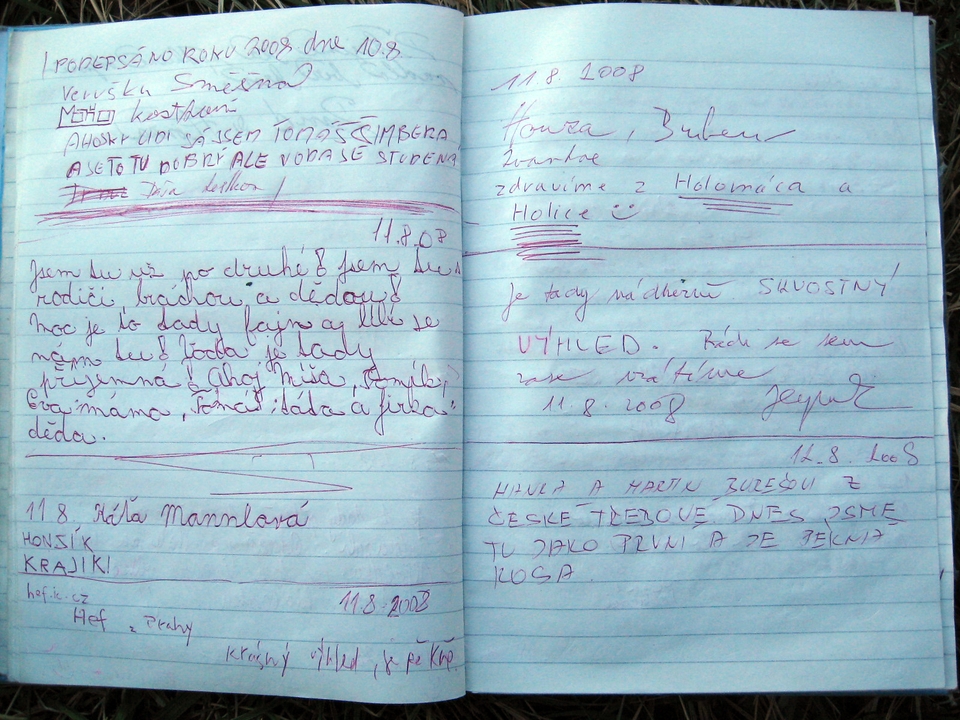 PODEPSÁNO ROKU 2008 dne 10.8
Verušku Směšná
kostkovi
AHOSKY LIDI SÁ JSEM TOMÁŠ ŠIMBERA
A SE TO TU DOBRÝ ALE VODA SE STUDENÁ
11.8.08
Jsem tu už po druhé! Jsem tu s
rodiči, bráchou, a dědou!
Moc je to tady fajn a líbí se
nám tu! Voda je tady
příjemná! Ahoj Míša,
Eva máma, Tomáš: táta a Jirka:
děda.
11 8. Káťa Mannlová
HONSÍK
KRAJÍKI
hef.ic.cz
11.8.2008
Hef z Prahy
krásný výhled, je
11.8. 2008
Honza,
zdravíme z Holomóca a
Holice :)
je tady nádherně SKVOSTNÝ
VÝHLED. Rádi se sem
zase vrátíme
11.8. 2008
12.8. 2008
HANKA A MARTIN BUREŠOVI Z
ČESKÉ TŘEBOVÉ DNES JSME
TU JAKO PRVNÍ A JE PĚKNÁ
KOSA